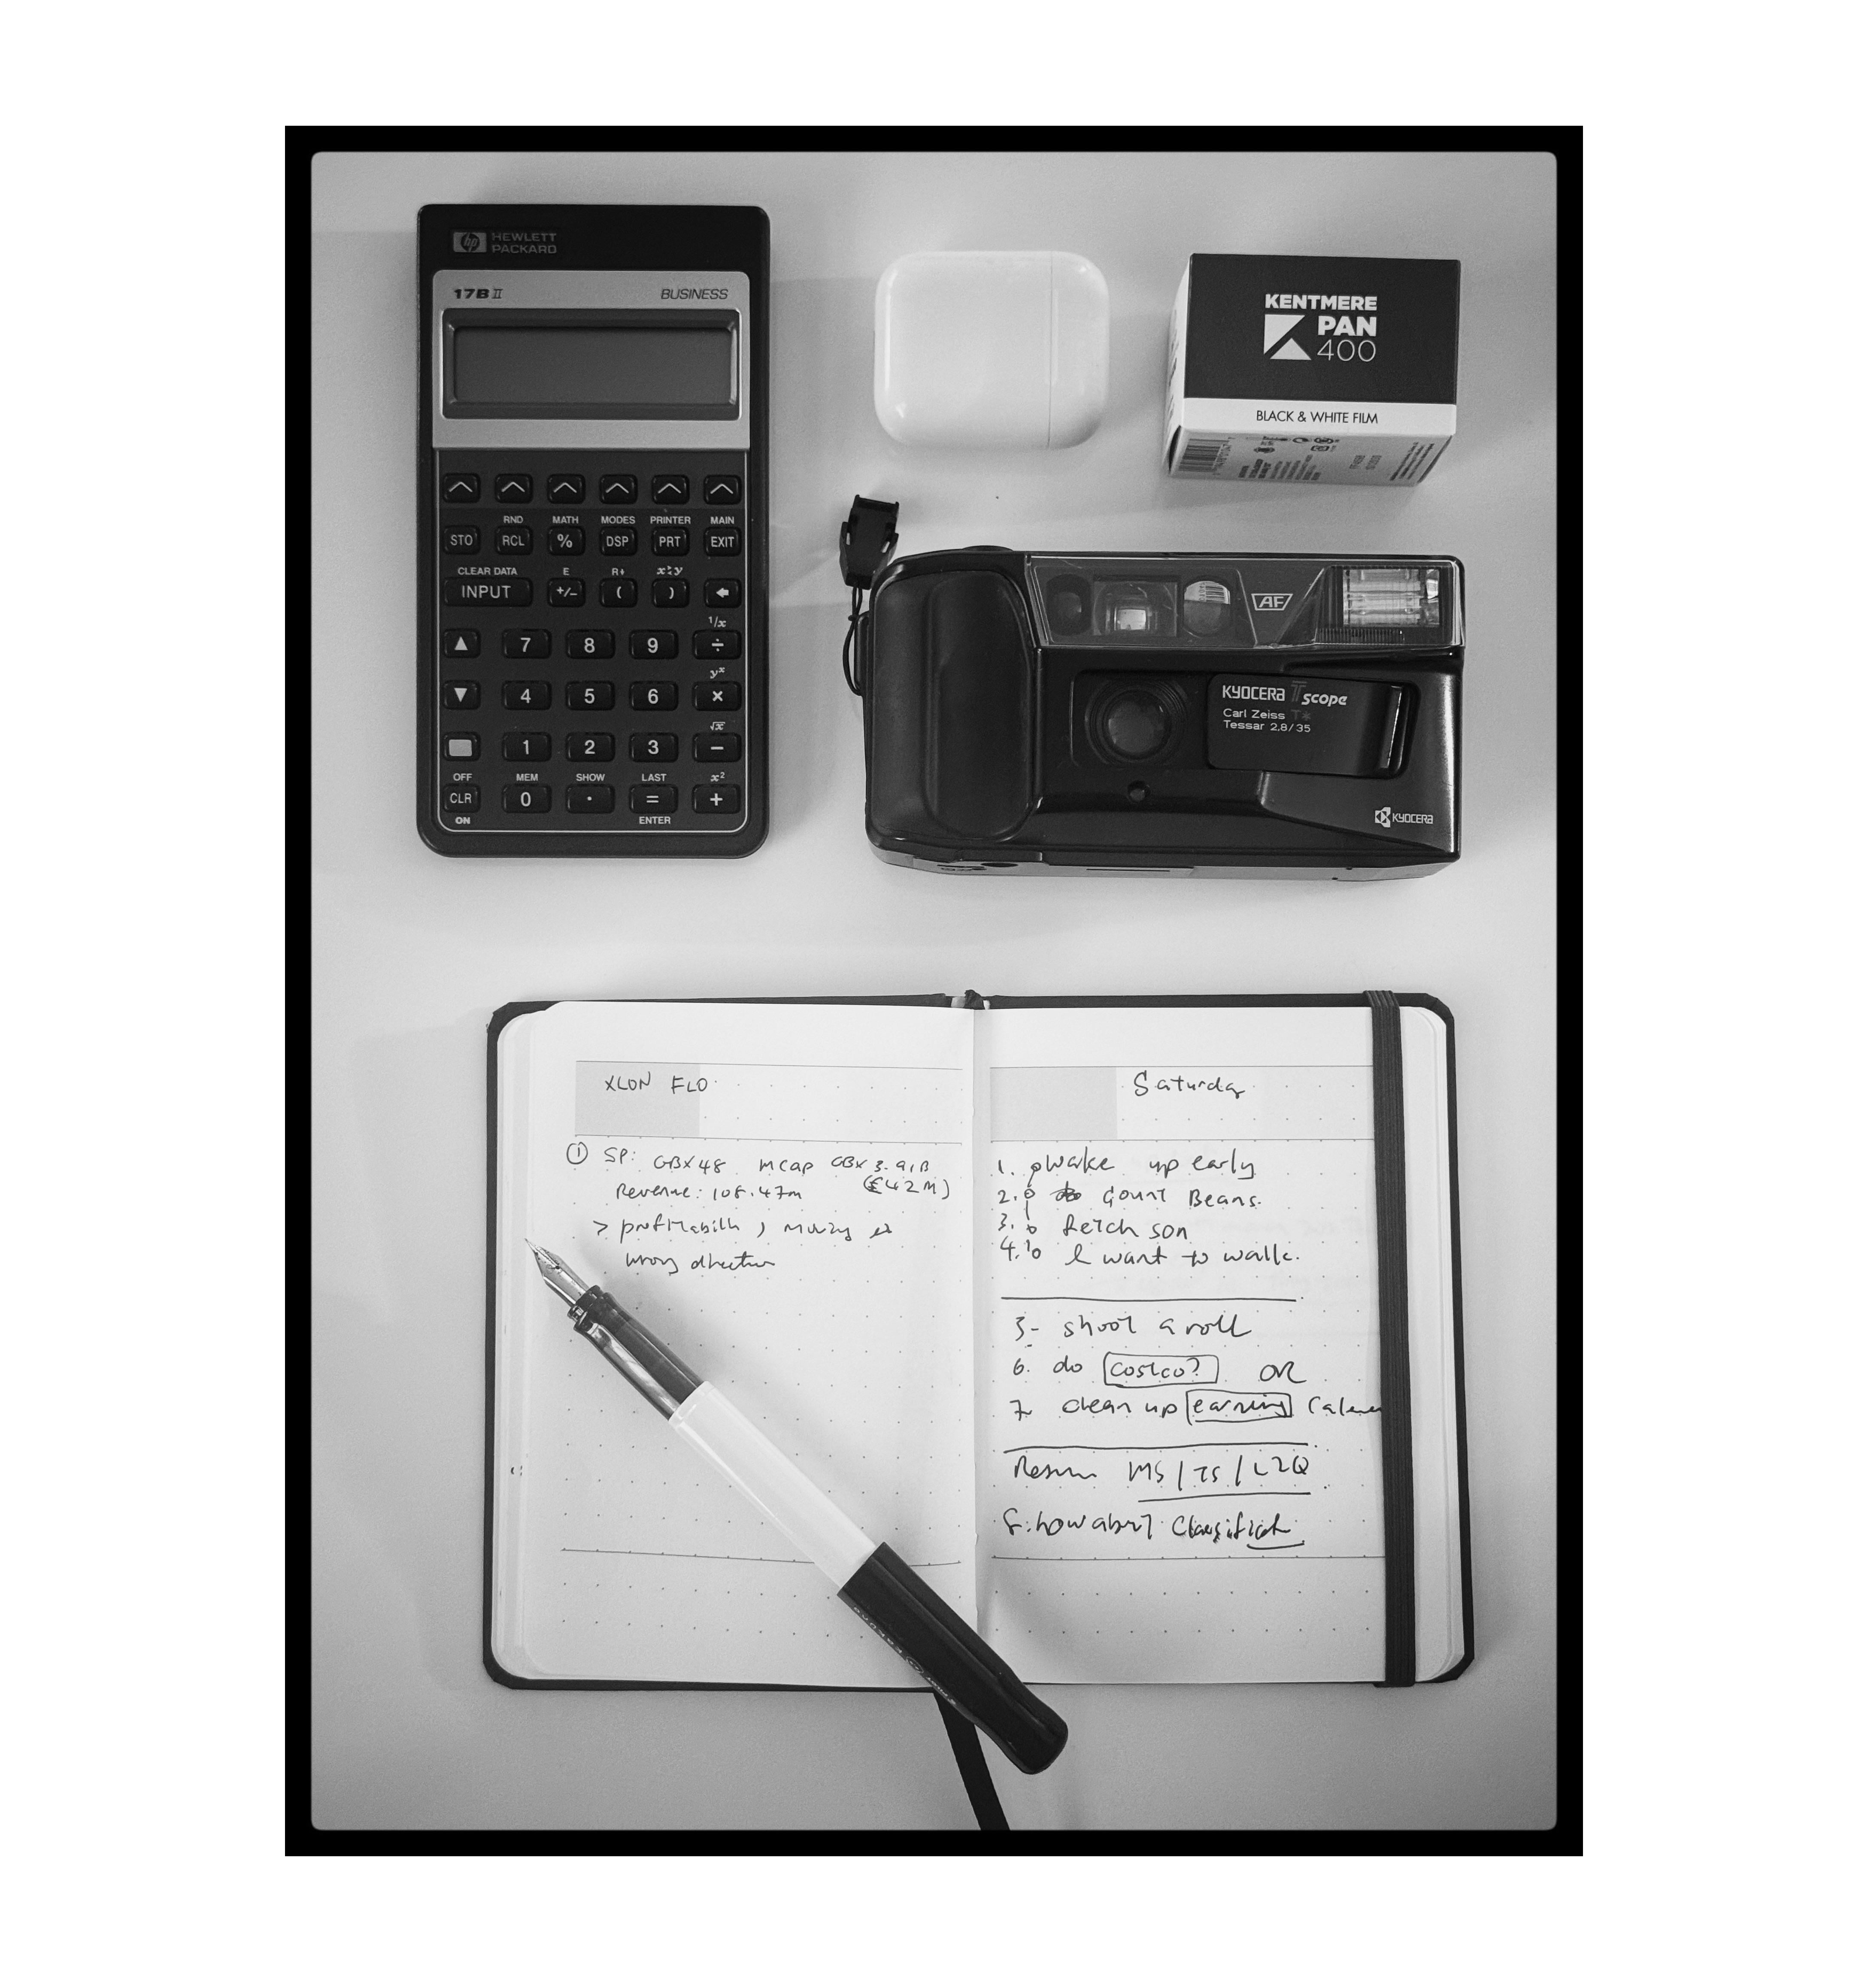 hp HEWLETT
PACKARD
17B II BUSINESS
RND MATH MODES PRINTER MAIN
STO RCL % DSP PRT EXIT
CLEAR DATA E R↓ x≷y
INPUT +/− ( ) ←
1/x
▲ 7 8 9 ÷
yˣ
▼ 4 5 6 ×
√x
1 2 3 −
OFF MEM SHOW LAST x²
CLR 0 · = +
ON ENTER
KENTMERE
PAN
400
BLACK & WHITE FILM
AF
KYOCERA T scope
Carl Zeiss T*
Tessar 2,8/35
KYOCERA
XLON FLO
① SP: GBX48 MCap GBX 3.91B
Revenue: 108.47m (£42M)
> profitabilh, moving
wrong direction
Saturday
1. Wake up early
2. Count Beans.
3. fetch son
4. I want to walk.
5- shoot a roll
6. do costco? OR
7 clean up earning
MS / TS / L2Q
8. how about